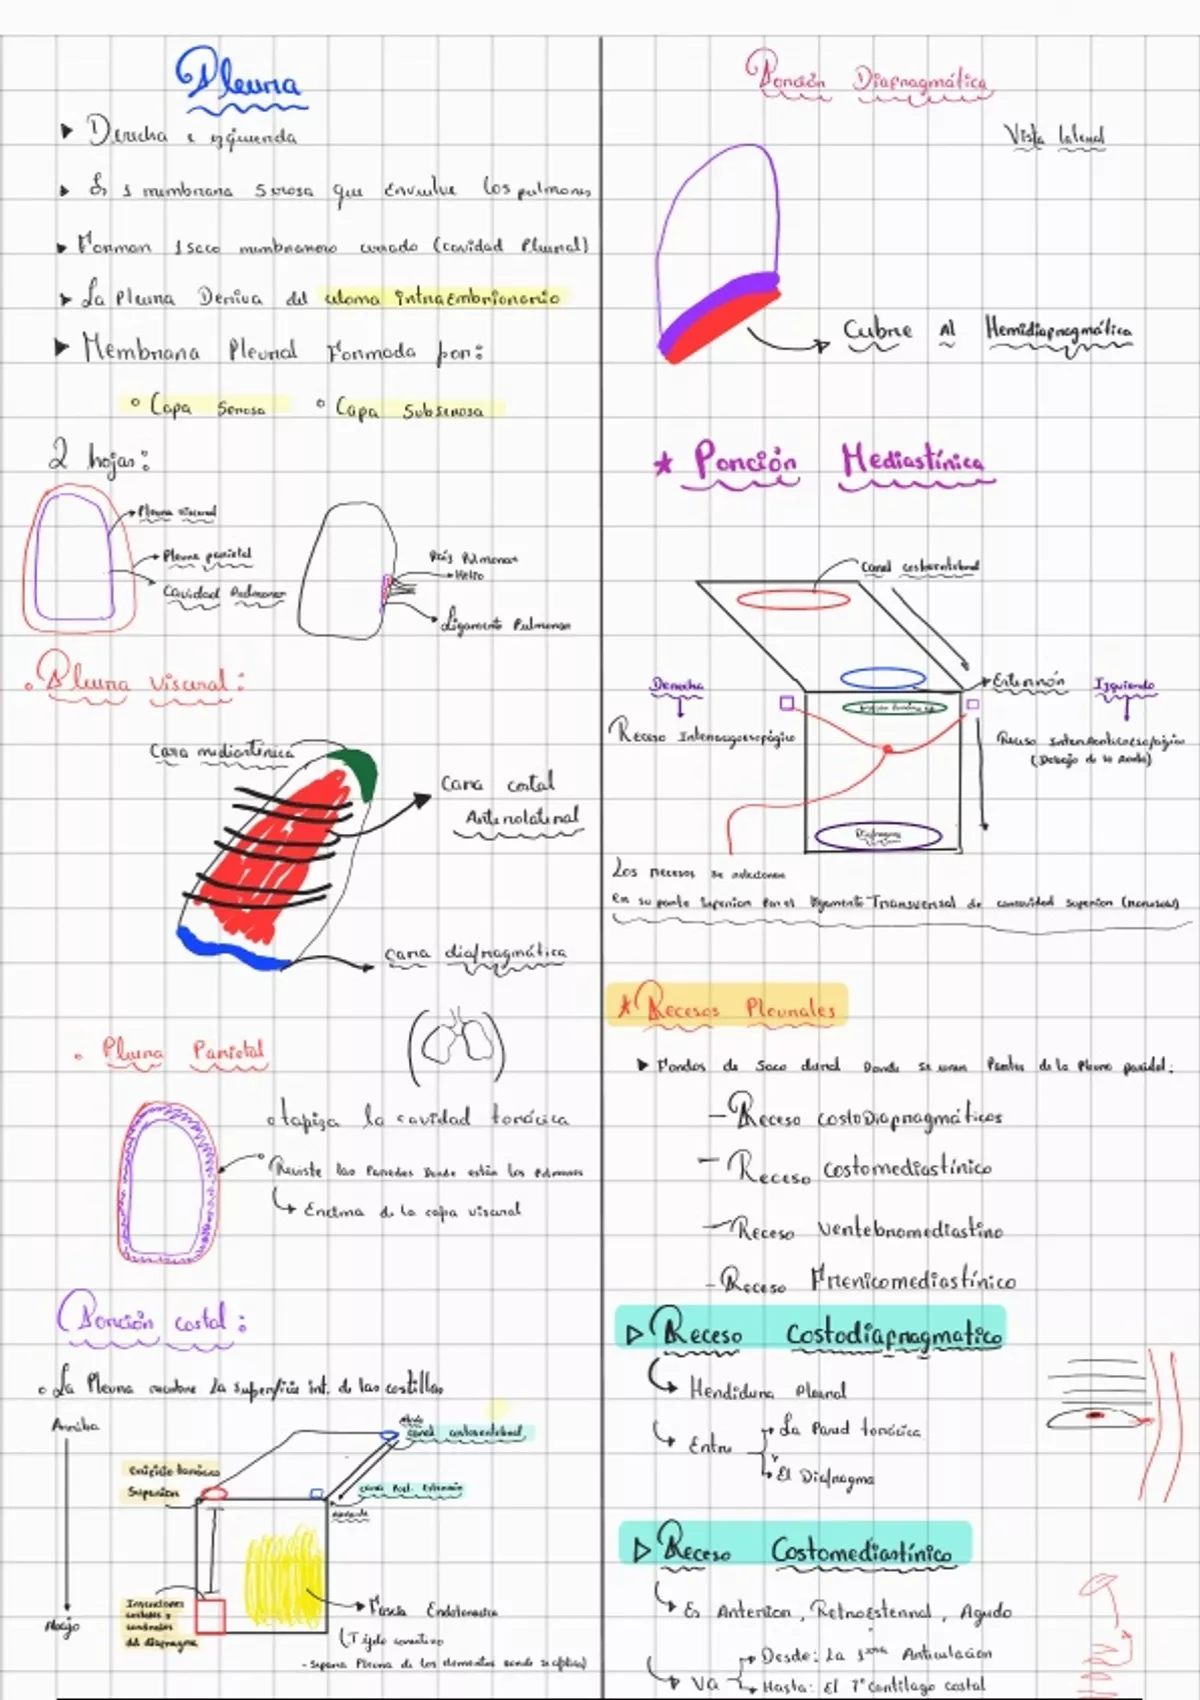 Pleura
▸ Derecha e izquierda
▸ Es 1 membrana Serosa que Envuelve los pulmones
▸ Forman 1 saco membranoso cerrado (cavidad Pleural)
▸ La Pleura Deriva del celoma intraEmbrionario
▸ Membrana Pleural Formada por:
° Capa Serosa ° Capa Subserosa
2 hojas:
Pleura visceral
Pleura parietal
Cavidad Pulmonar
Raís Pulmonar
Helio
Ligamento Pulmonar
° Pleura visceral:
Cara mediastínica
Cara costal
Anterolateral
Cara diafragmática
° Pleura Parietal
° tapiza la cavidad torácica
° Reviste las Paredes Donde están los Pulmones
↳ Encima de la capa visceral
Porción costal:
° La Pleura recubre la superficie int. de las costillas
Arriba
Abajo
canal costovertebral
Orificio torácico
Superior
cara Post. Extensión
Inserciones
costales y
vertebrales
del diafragma
Fascia Endotoracica
(Tejido conectivo
- separa Pleura de los elementos donde se aplica)
Porción Diafragmática
Vista lateral
Cubre Al Hemidiafragmática
★ Porción Mediastínica
Canal costovertebral
Extensión
Derecha
Izquierdo
Receso Interacigoesofágico
Receso Interaorticoesofágico
(Debajo de la Aorta)
Diafragma
Los recesos se relacionan
En su parte Superior Por el ligamento Transversal de concavidad superior
★ Recesos Pleurales
▸ Fondos de Saco durel Donde se unen Partes de la Pleura parietal:
– Receso costoDiafragmáticos
– Receso costomediastínico
– Receso vertebromediastino
– Receso Frenicomediastínico
▷ Receso Costodiafragmatico
↳ Hendidura Pleural
↳ Entre → La Pared torácica
→ El Diafragma
▷ Receso Costomediastínico
↳ Es Anterior, RetroEsternal, Agudo
↳ Va → Desde: La 1era Articulacion
→ Hasta: El 7° Cartilago costal